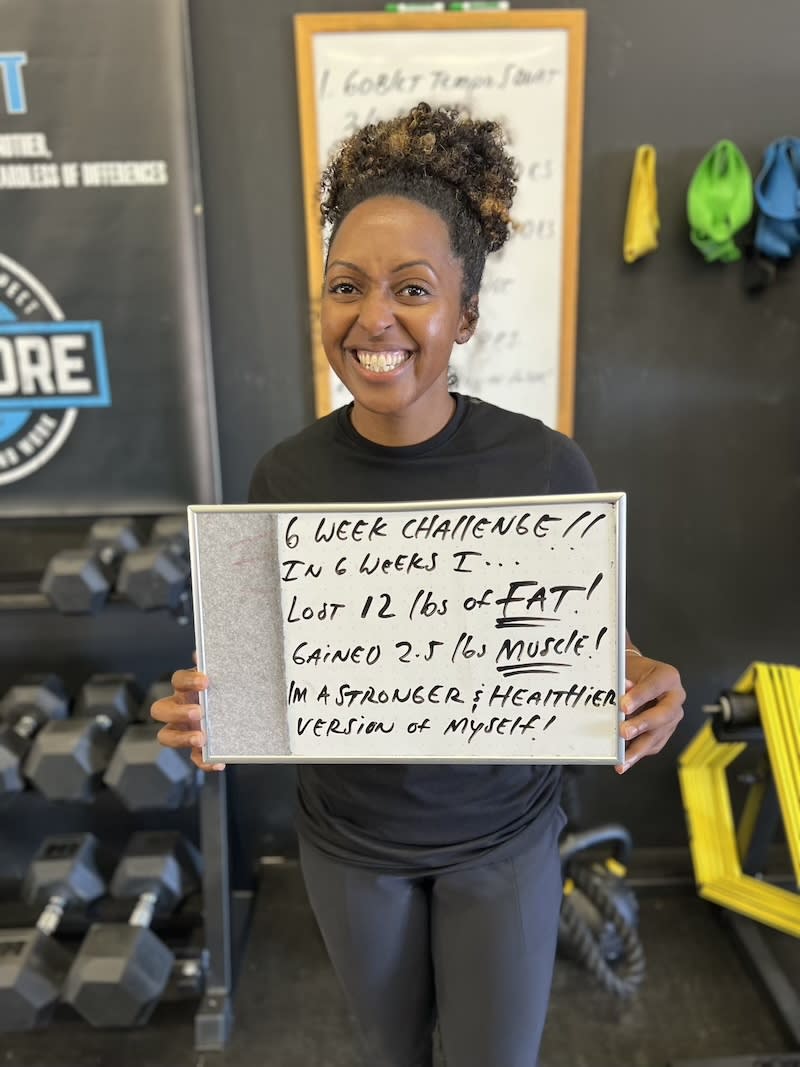 T
REGARDLESS OF DIFFERENCES
ORE
1. GOBlET Tempo SQUAT
6 WEEK CHAllENGE!!
IN 6 WEEKS I...
LOST 12 lbs of FAT!
GAINED 2.5 lbs MUSClE!
I'M A STRONGER & HEAlTHIER
VERSION of MYSElf!